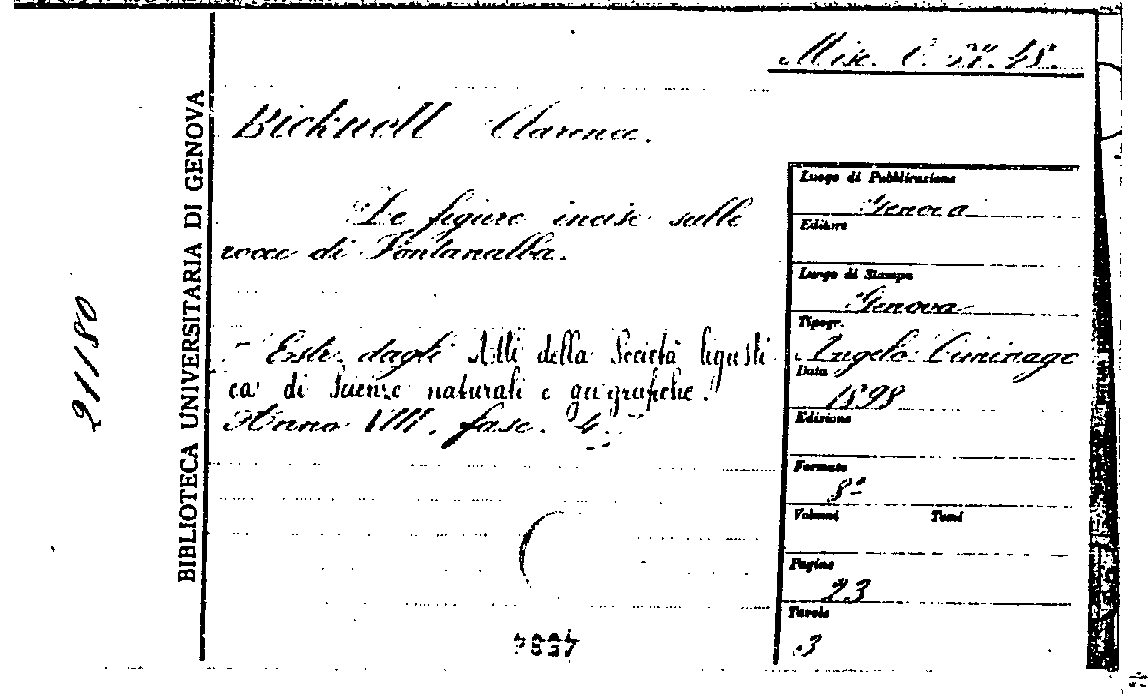 Misc. C. 37. 48.
BIBLIOTECA UNIVERSITARIA DI GENOVA
21180
Bicknell Clarence.
Le figure incise sulle
rocce di Fontanalba.
Estr. dagli Atti della Società ligusti
ca di Scienze naturali e geografiche.
Anno VIII, fasc. 4
Luogo di Pubblicazione
Genova
Editore
Luogo di Stampa
Genova
Tipogr.
Angelo Ciminago
Data
1898
Edizione
Formato
8º
Volumi Tomi
Pagine
23
Tavole
3